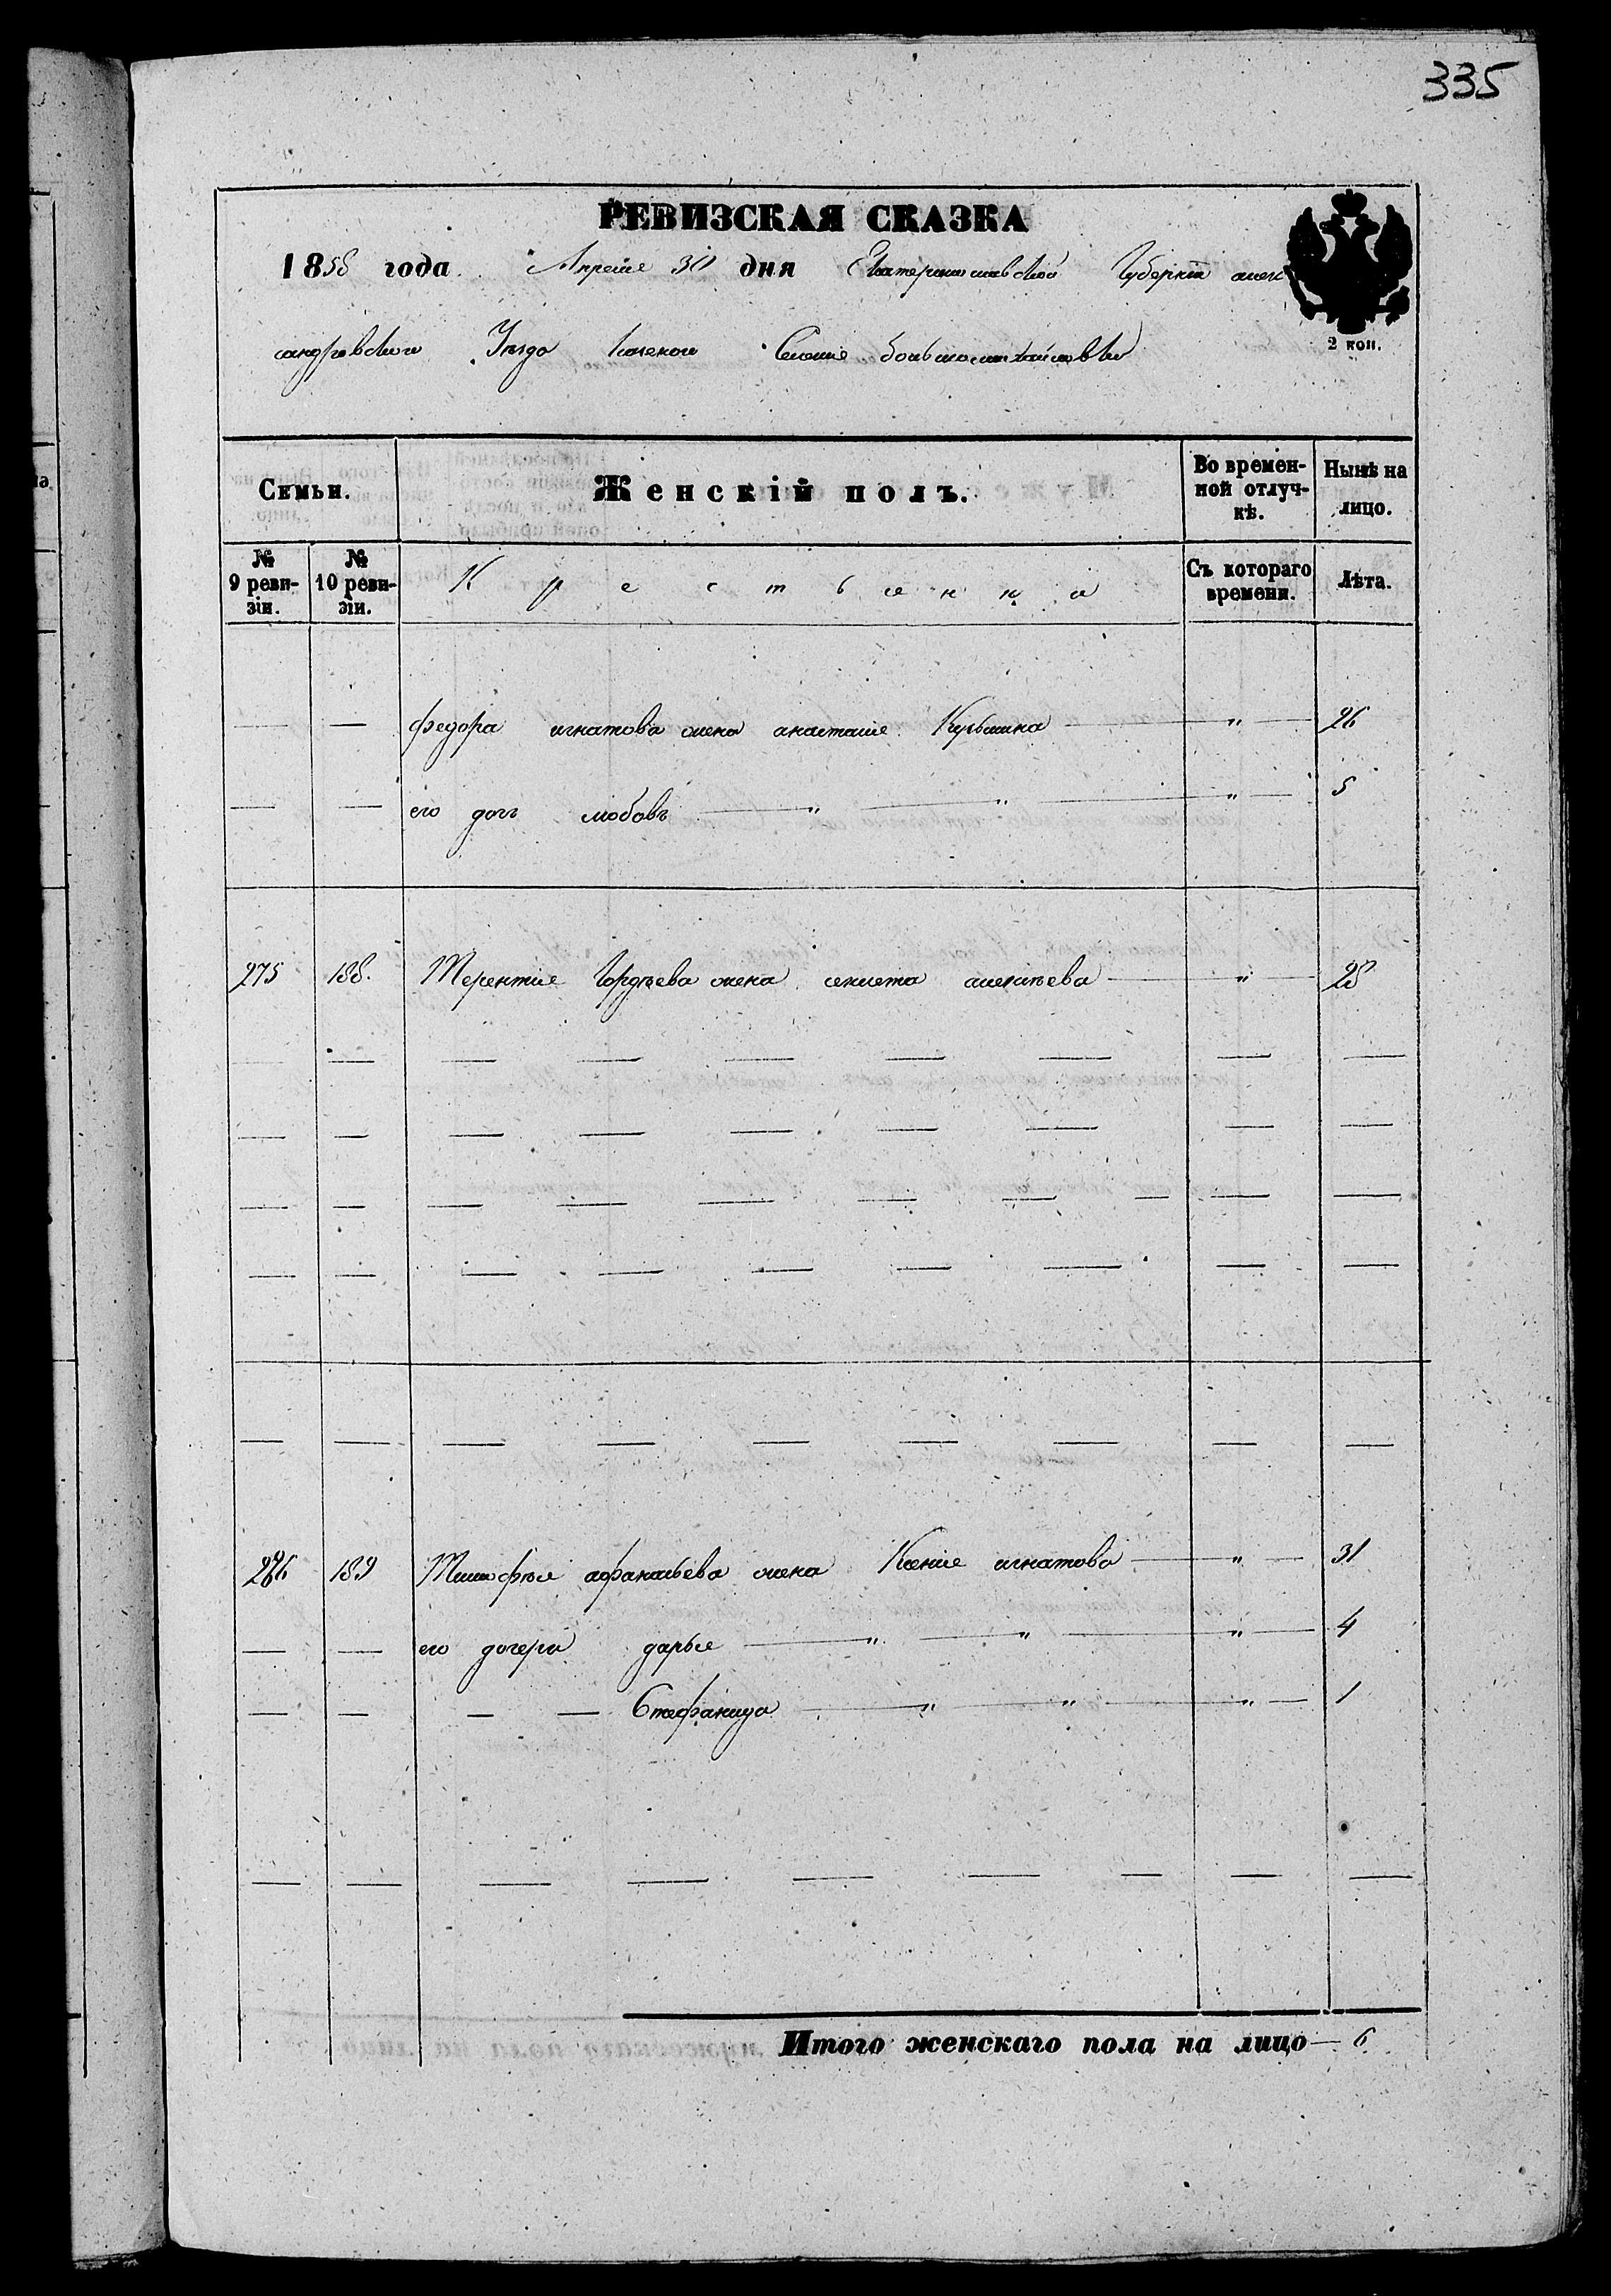 335
РЕВИЗСКАЯ СКАЗКА
1858 года Апреля 30 дня Екатеринославской Губерніи алек
сандровского Уезда казеного Селения большомихайловки
2 коп.
Семьи. Женскій полъ. Во времен-ной отлуч-кѣ. Нынѣ на лицо.
№ 9 реви-зіи. № 10 реви-зіи. Крестьянки Съ котораго времени. Лѣта.
— — федора игнатова жена анастасия Кузьмина — " — 26
— — его дочь любовь — " — " — " — 5
275 188 Терентия Гордѣева жена секлета алексѣева — " — 28
— — — — — — — — —
— — — — — — — — —
— — — — — — — — — —
— — — — — — — — —
— — — — — — — — —
276 189 Тимофѣя афанасьева жена Ксения игнатова — " — 31
— — его дочери дарья — " — " — " — 4
— — — — Стефанида — " — " — " — 1
— — — — — — — — —
Итого женскаго пола на лицо — 6